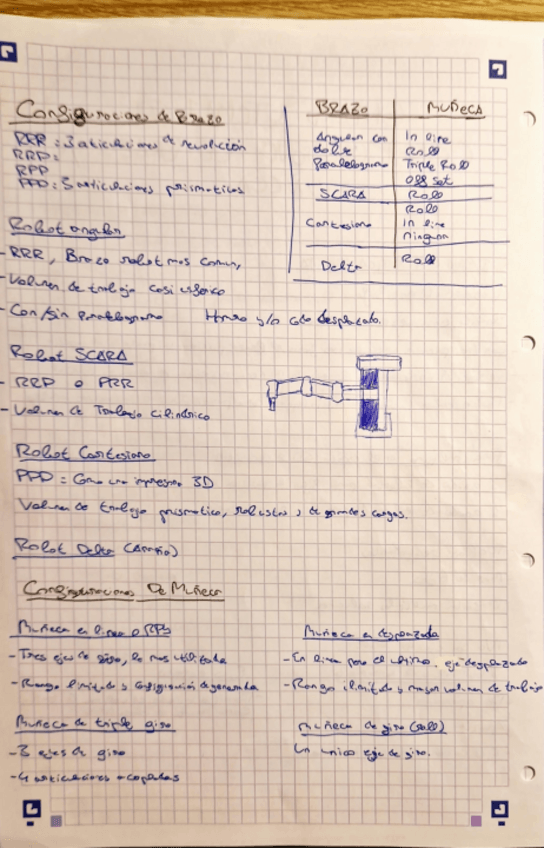 Configuraciones de Brazo
RRR : 3 articulaciones de revolución
RRP:
RPP
PPP: 3 articulaciones prismaticas
BRAZO MUÑECA
Angular con doble Paralelogramo
In line
Roll
Triple Roll
Off set
SCARA Roll
Cartesiano
Roll
In line
Ninguna
Delta Roll
Robot angular
- RRR, Brazo robot mas comun,
- Volumen de trabajo casi esferico
- Con/Sin Paralelogramo Hombro y/o codo desplazado.
Robot SCARA
- RRP o PRR
- Volumen de Trabajo cilindrico
Robot Cartesiano
PPP = Como una impresora 3D
Volumen de trabajo prismatico, robustos y de grandes cargas.
Robot Delta (Araña)
Configuraciones De Muñeca
Muñeca en linea o RPY
- Tres ejes de giro, la mas utilizada
- Rango limitado y configuración degenerada
Muñeca en desplazada
- En linea pero el ultimo eje desplazado
- Rango ilimitado y mayor volumen de trabajo
Muñeca de triple giro
- 3 ejes de giro
- 4 articulaciones acopladas
Muñeca de giro (roll)
Un unico eje de giro.